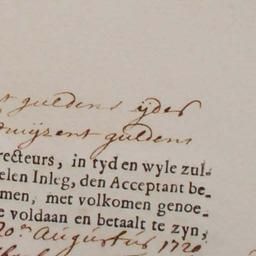 t guldens yder
duijzent guldens
recteurs, in tyd en wyle zul-
elen Inleg, den Acceptant be-
men, met volkomen genoe-
e voldaan en betaalt te zyn,
Augustus 1720